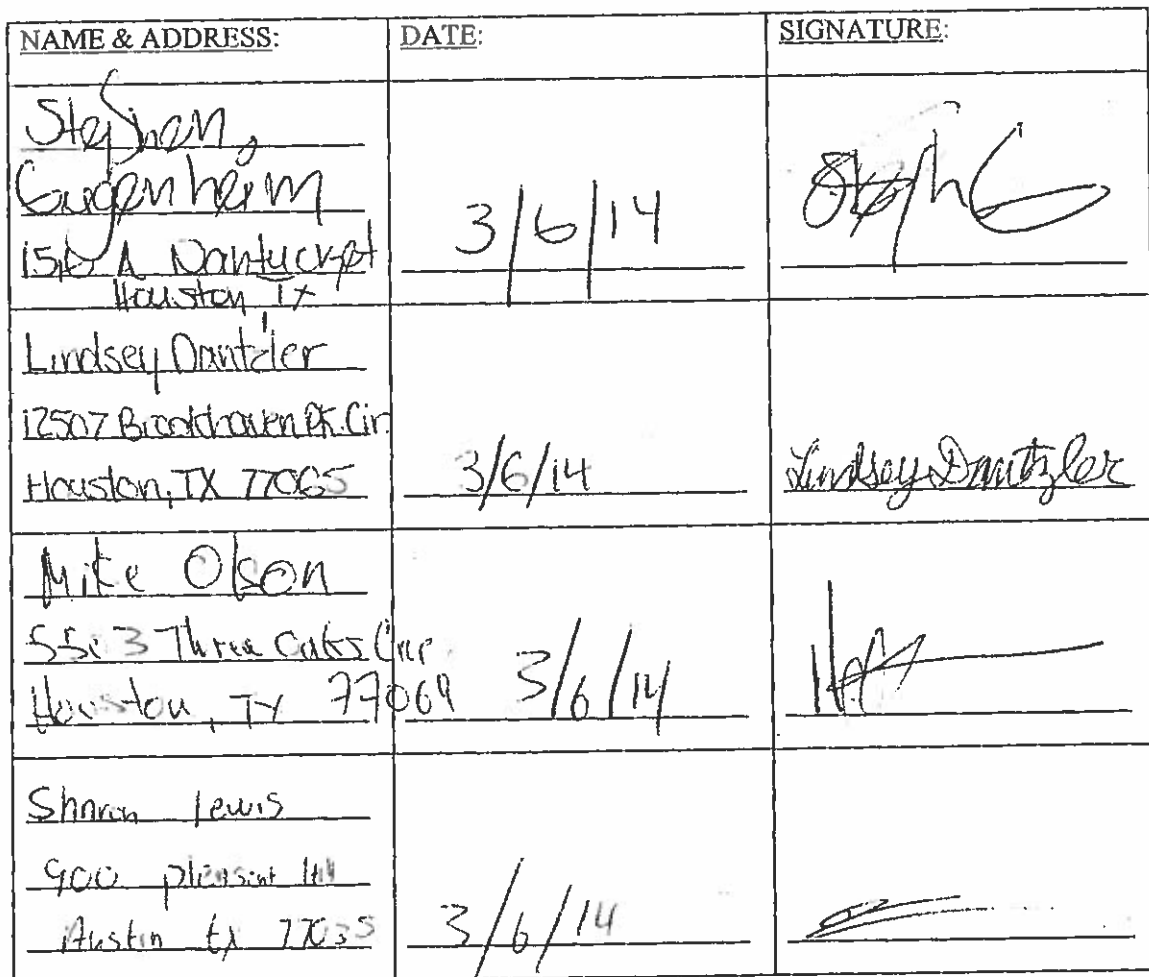 NAME & ADDRESS:
DATE:
SIGNATURE:
Stephen
Gugenheim
Nantucket
Houston Tx
3/6/14
Lindsey Dantzler
12507 Brookhaven Pk. Cir
Houston, TX 77065
3/6/14
Lindsey Dantzler
Mike Olson
Three Oaks
Houston, TX 77069
3/6/14
Sharon Lewis
900 pleasant
Austin tx
3/6/14